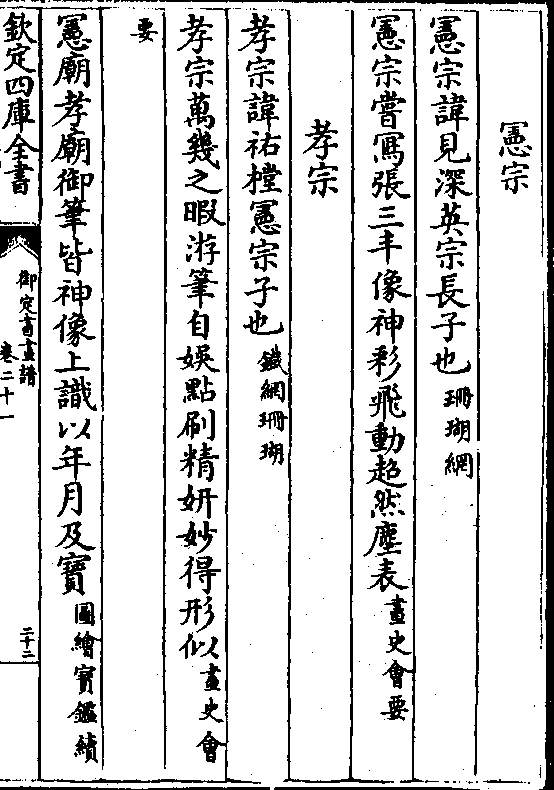 憲宗
憲宗諱見深英宗長子也珊瑚網
憲宗嘗寫張三丰像神彩飛動超然塵表畫史會要
孝宗
孝宗諱祐樘憲宗子也鐵網珊瑚
孝宗萬幾之暇游筆自娛點刷精妍妙得形似畫史會
要
憲廟孝廟御筆皆神像上識以年月及寳圖繪寳鑑續
欽定四庫全書
御定書畫譜
卷二十一
二十二